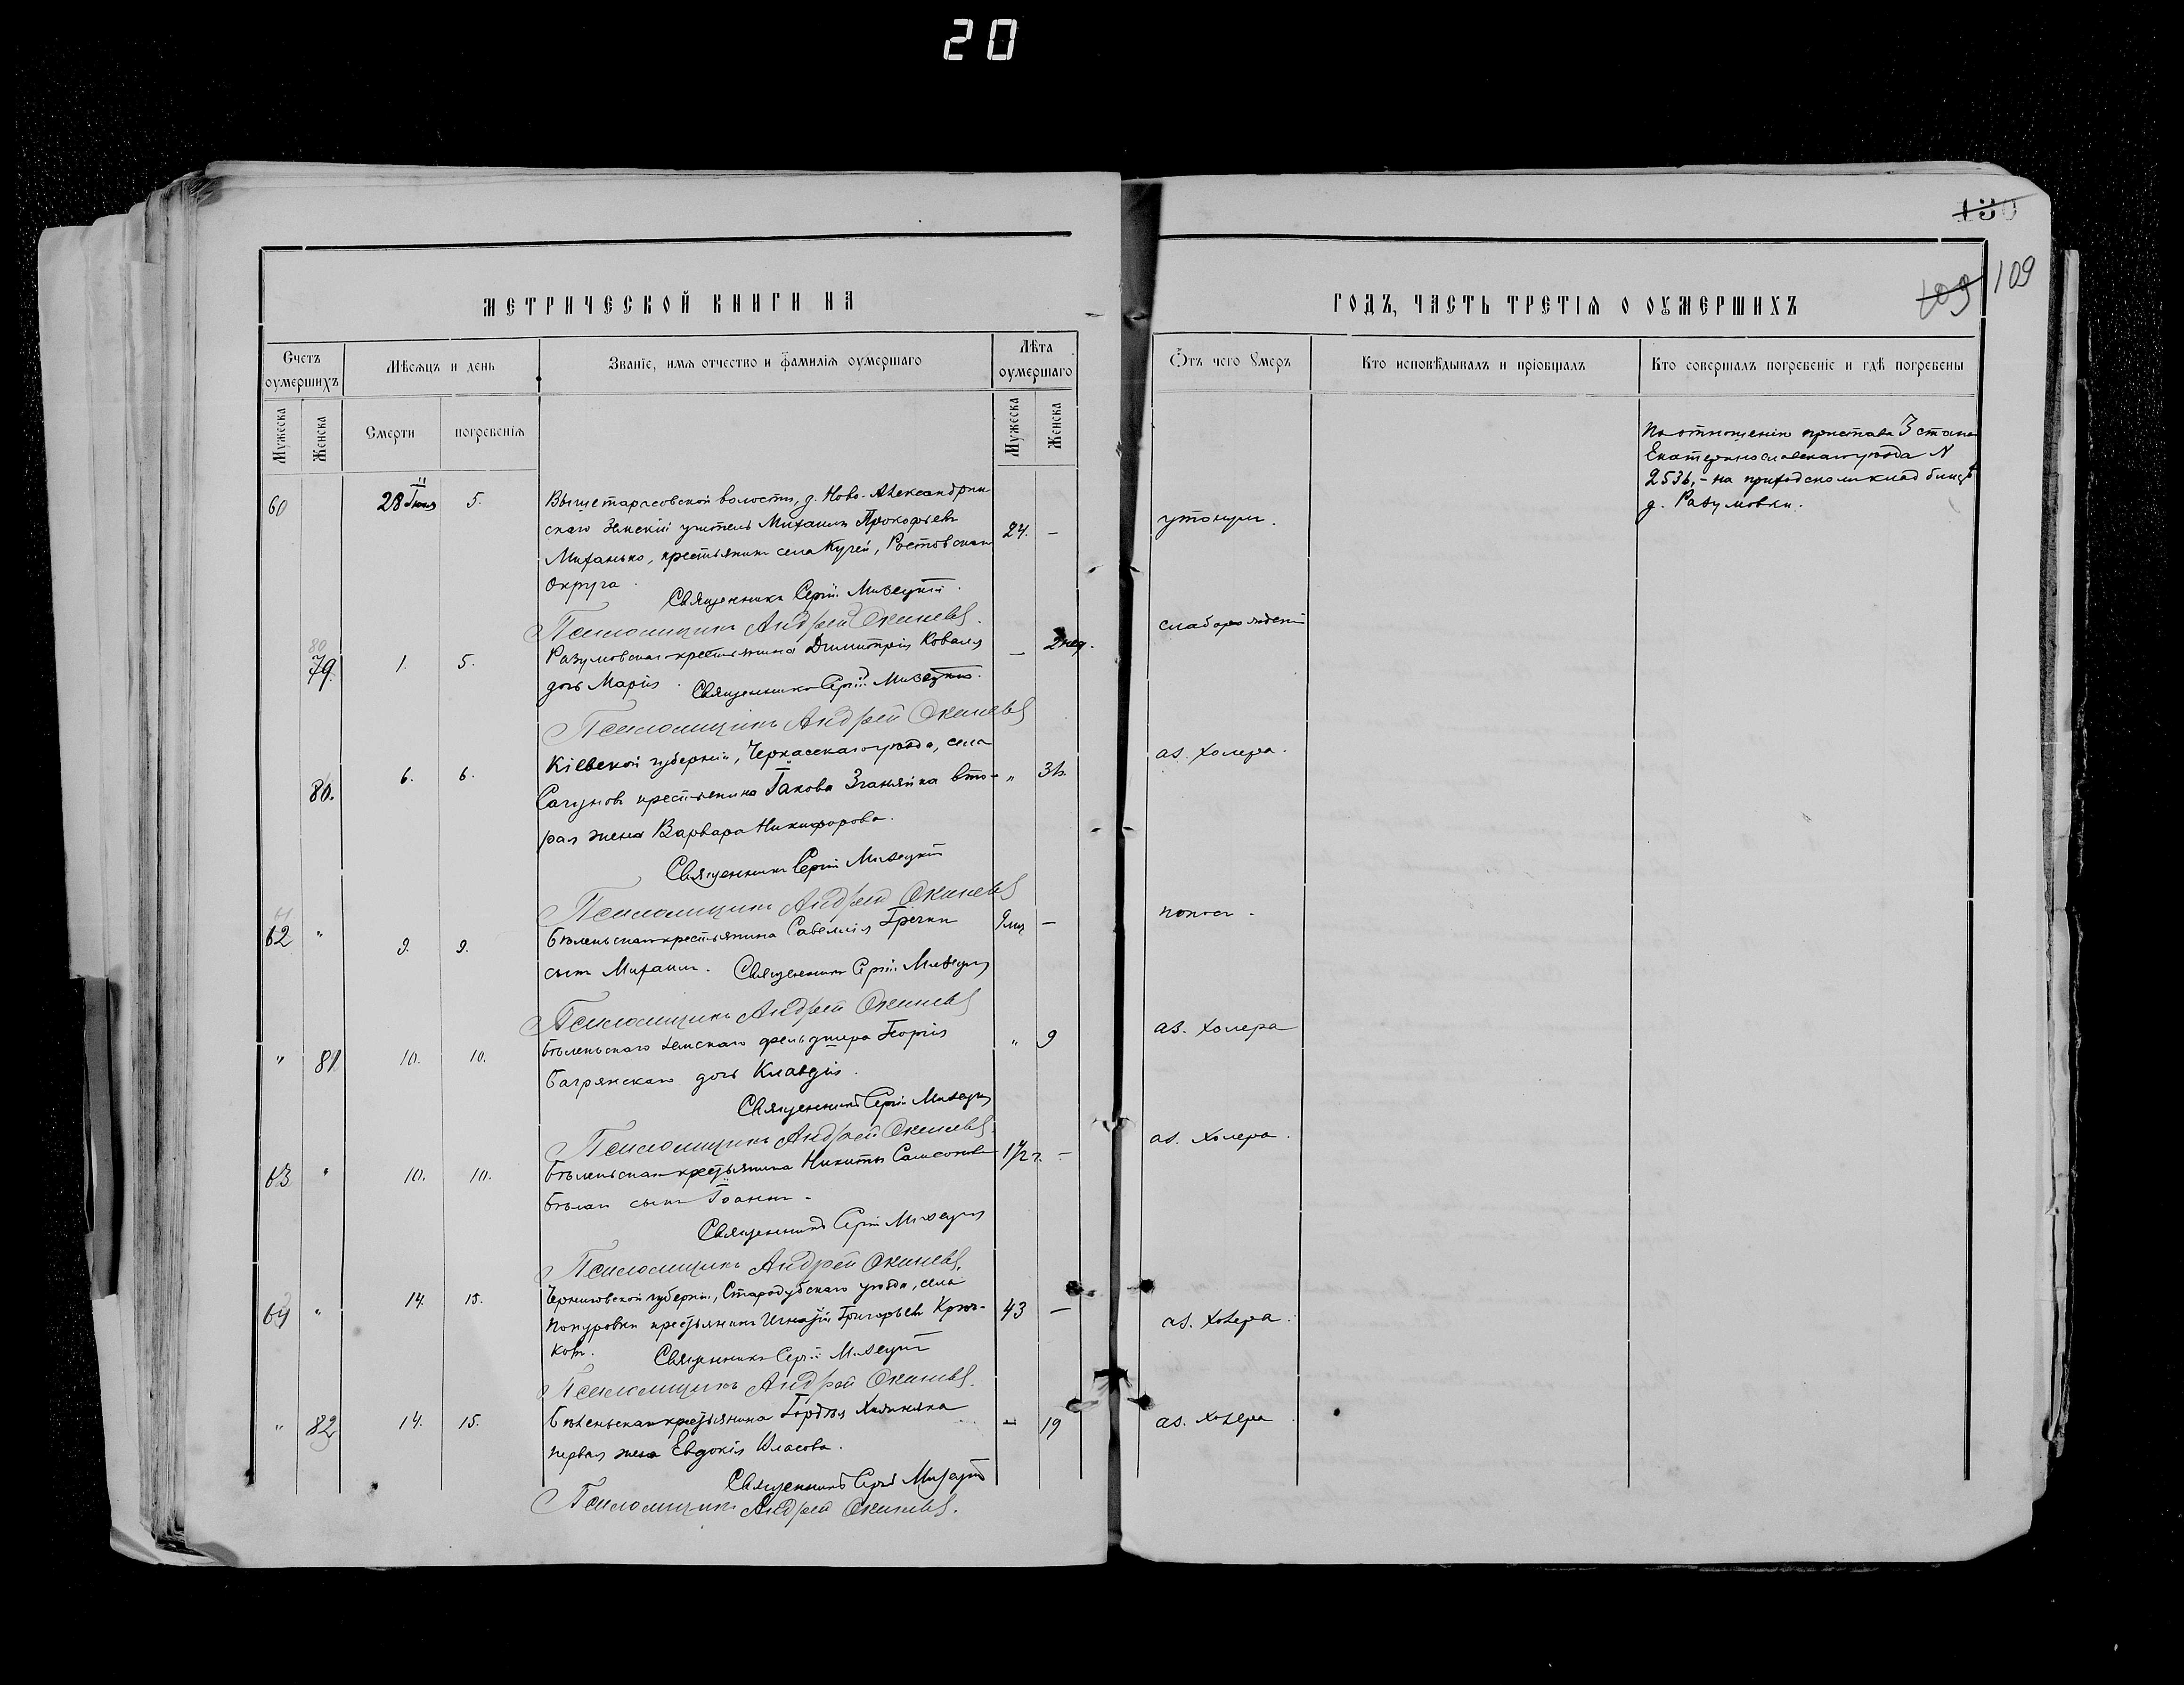 20
130
109
109
МЕТРИЧЕСКОЙ КНИГИ НА
ГОДЪ, ЧАСТЬ ТРЕТІЯ О ОУМЕРШИХЪ
Счетъ оумершихъ
Мѣсяцъ и день
Званіе, имя отчество и фамилія оумершаго
Лѣта оумершаго
Отъ чего умеръ
Кто исповѣдывалъ и пріобщалъ
Кто совершалъ погребеніе и гдѣ погребены
Мужеска
Женска
Смерти
погребенія
Мужеска
Женска
По отношенію пристава 3 стана
Екатеринославскаго уѣзда N
2536,- на приходском кладбищѣ
д. Разумовки.
60
28 Іюня
5.
Вышетарасовской волости, д. Ново-Александрин
скаго Земскій учитель Михаилъ Прокофьевъ
24.
—
утонулъ.
Миханько, крестьянинъ села Кугей, Ростовскаго
Округа.
Священникъ Сергій Мизецкій.
Псаломщикъ Андрей Окиневъ.
80
79.
1.
5.
Разумовскаго крестьянина Димитрія Коваля
—
2 нед.
слаборожденій
дочь Марія.
Священникъ Сергій Мизецкій.
Псаломщикъ Андрей Окиневъ
80.
6.
6.
Кіевской губерніи, Черкасскаго уѣзда, села
Сагунов крестьянина Іакова Зганяйка вто-
"
36.
аз. холера.
рая жена Варвара Никифорова.
Священникъ Сергій Мизецкій
Псаломщикъ Андрей Окиневъ
61
62
"
9.
9.
Бѣленьскаго крестьянина Савелія Гречки
9 мц
—
поносъ.
сынъ Михаилъ.
Священникъ Сергій Мизецкій
Псаломщикъ Андрей Окиневъ
"
81
10.
10.
Бѣленьскаго земскаго фельдшера Георгія
"
9
аз. холера
Багрянскаго дочь Клавдія.
Священникъ Сергій Мизецкій
Псаломщикъ Андрей Окиневъ.
63
"
10.
10.
Бѣленьскаго крестьянина Никиты Самсонова
1 1/2 г.
—
аз. холера.
сынъ Іоаннъ.
Священникъ Сергій Мизецкій
Псаломщикъ Андрей Окиневъ.
64
"
14.
15.
Черниговской губерніи, Стародубскаго уѣзда, села
крестьянинъ Игнатій Григорьевъ Крюч-
43
—
аз. холера.
ковъ.
Священникъ Сергій Мизецкій
Псаломщикъ Андрей Окиневъ.
"
82
14.
15.
Бѣленьскаго крестьянина Гордѣя
—
19
аз. холера
первая жена Евдокія Власова.
Священникъ Сергій Мизецкій
Псаломщикъ Андрей Окиневъ.